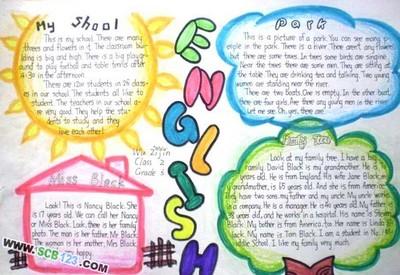 My Shool
This is my school. There are many
threes and flowers in it. The classroom buil
ding is big and high. There is a big playgro
und to play football and table tennis after
4:30 in the afternoon.
There are 1200 students in 24 class
es in our school. The students all like to
student. The teachers in our school a-
re very good. They help the stu-
dents to study and they
love each other!
ENGLISH
Class 2
Grade 3
Park
This is a picture of a park. You can see many p-
eople in the park. There is a river. There aren't any flowers,
but there are some trees. In trees some birds are singing.
Near the trees there are some men. They are sitting at
the table. They are drinking tea and talking. Two young
women are standing near the river.
There are two Boats. One is empty. In the other boat,
there are four girls. Are there any young men in the river?
Let me see. Oh, yes, there are.
Miss Black
Look! This is Nancy Black. She
is 17 years old. We can call her Nancy
or Miss Black. Look, there is her family
photo. The man is her father, Mr Black.
The woman is her mother, Mrs Black.
HAPPY
Family Tree
Look at my family tree. I have a big
family. David Black is my grandfather. He is
years old. He is from England. His wife Jane Black, my
grandmother, is 65 years old. And she is from America.
They have two sons, my father and my uncle. My uncle works
in a company. He is a manager. He is 40 years old. My father is
38 years old, and he works in a hospital. His name is Steven
Black. My mother is from America, too. Her name is Linda
My name is Tom Black. I am a student in No. 14
Middle School. I like my family very much.
www.SCB123.com